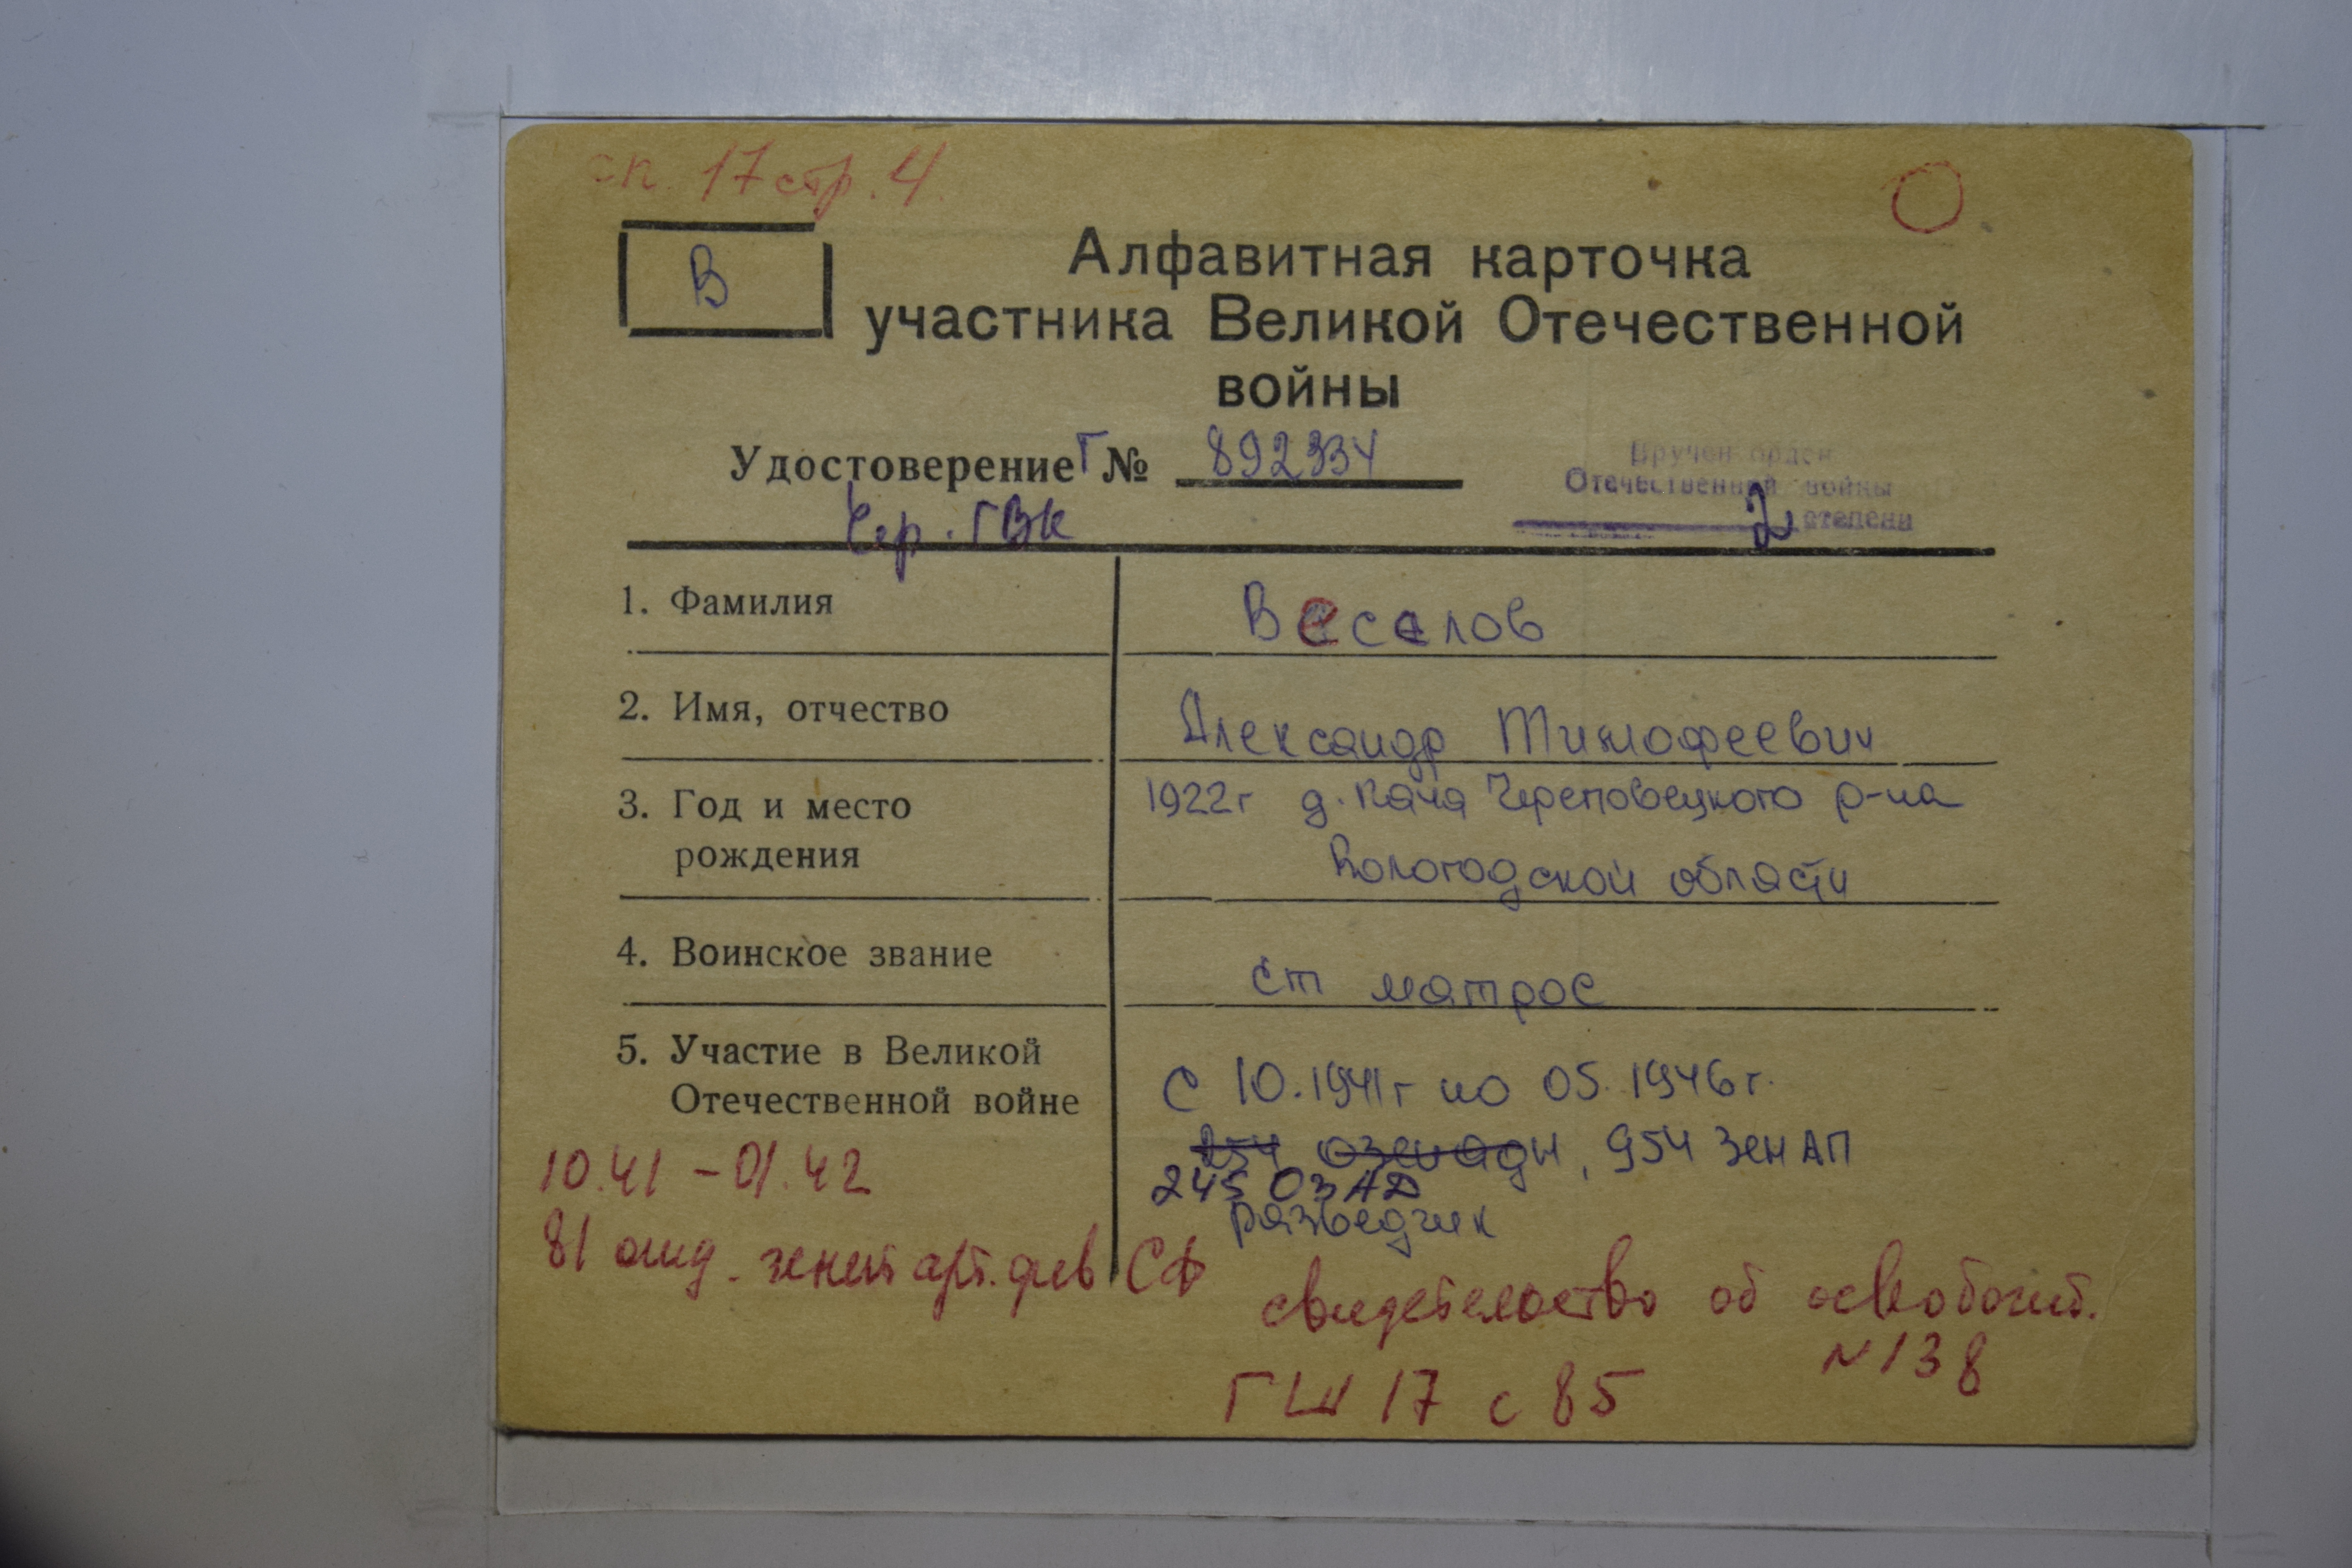 сп. 17 стр. 4
В
Алфавитная карточка
участника Великой Отечественной
войны
Удостоверение Г № 892334
Чер. ГВК
Вручен орден
Отечественной войны
2 степени
1. Фамилия
Веселов
2. Имя, отчество
Александр Тимофеевич
3. Год и место
рождения
1922г д. Кача Череповецкого р-на
Вологодской области
4. Воинское звание
ст матрос
5. Участие в Великой
Отечественной войне
с 10.1941г по 05.1946г.
254 озенадн, 954 зенАП
245 ОЗАД
разведчик
10.41 – 01.42
81 зенит арт. див СФ
свидетельство об освобожд.
N 138
ГШ 17 с 85